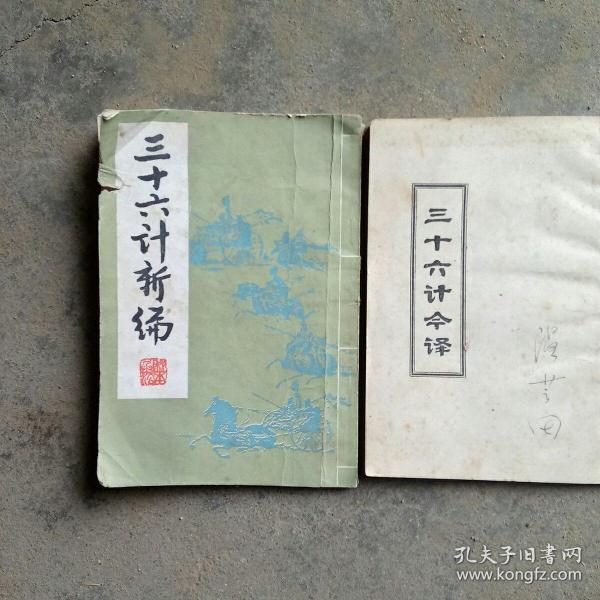 三十六计新编
三十六计今译
孔夫子旧书网
www.kongfz.com